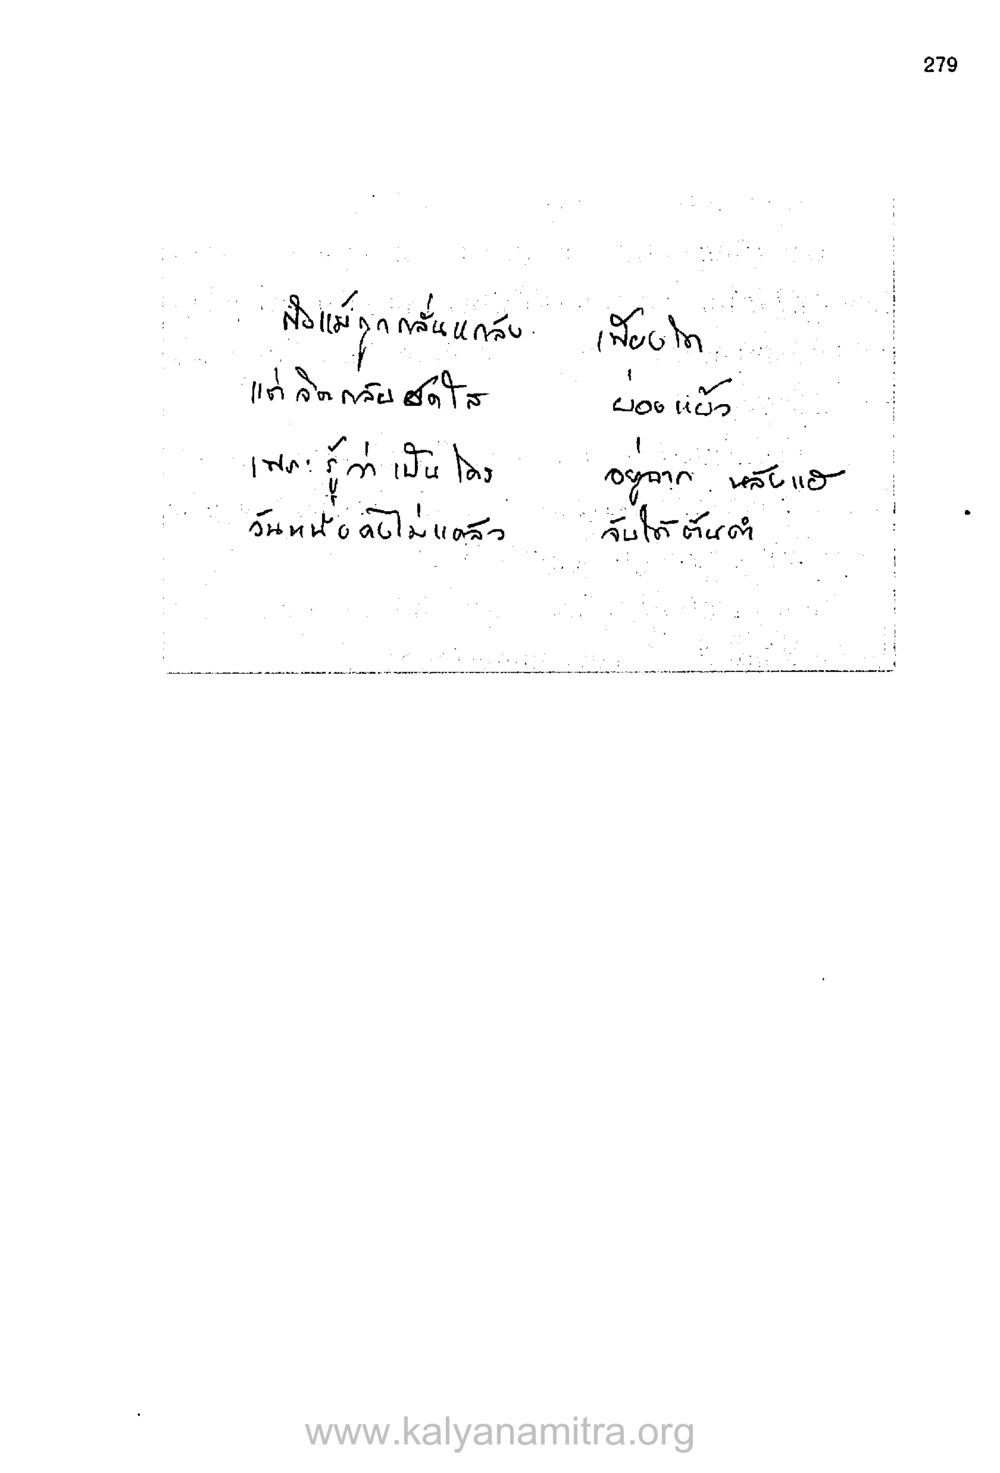 279
ถึงแม้ถูกกลั่นแกล้ง เพียงใด
แต่จิตกลับสดใส ผ่องแผ้ว
เพราะรู้ว่าเป็นใคร อยู่ฉากหลังแฮ
วันหนึ่งคงไม่แคล้ว จับได้ต้นตำ
www.kalyanamitra.org